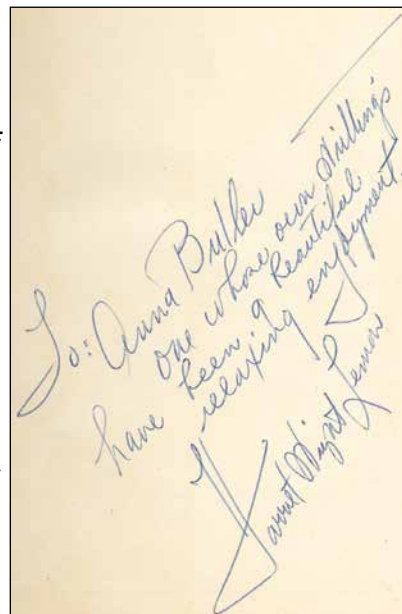 To: Anna Butler
one whose own
have been a beautiful
relaxing enjoyment.
Harriet Wright Lemon